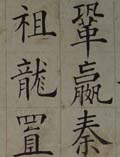 鞏嬴秦
祖龍置